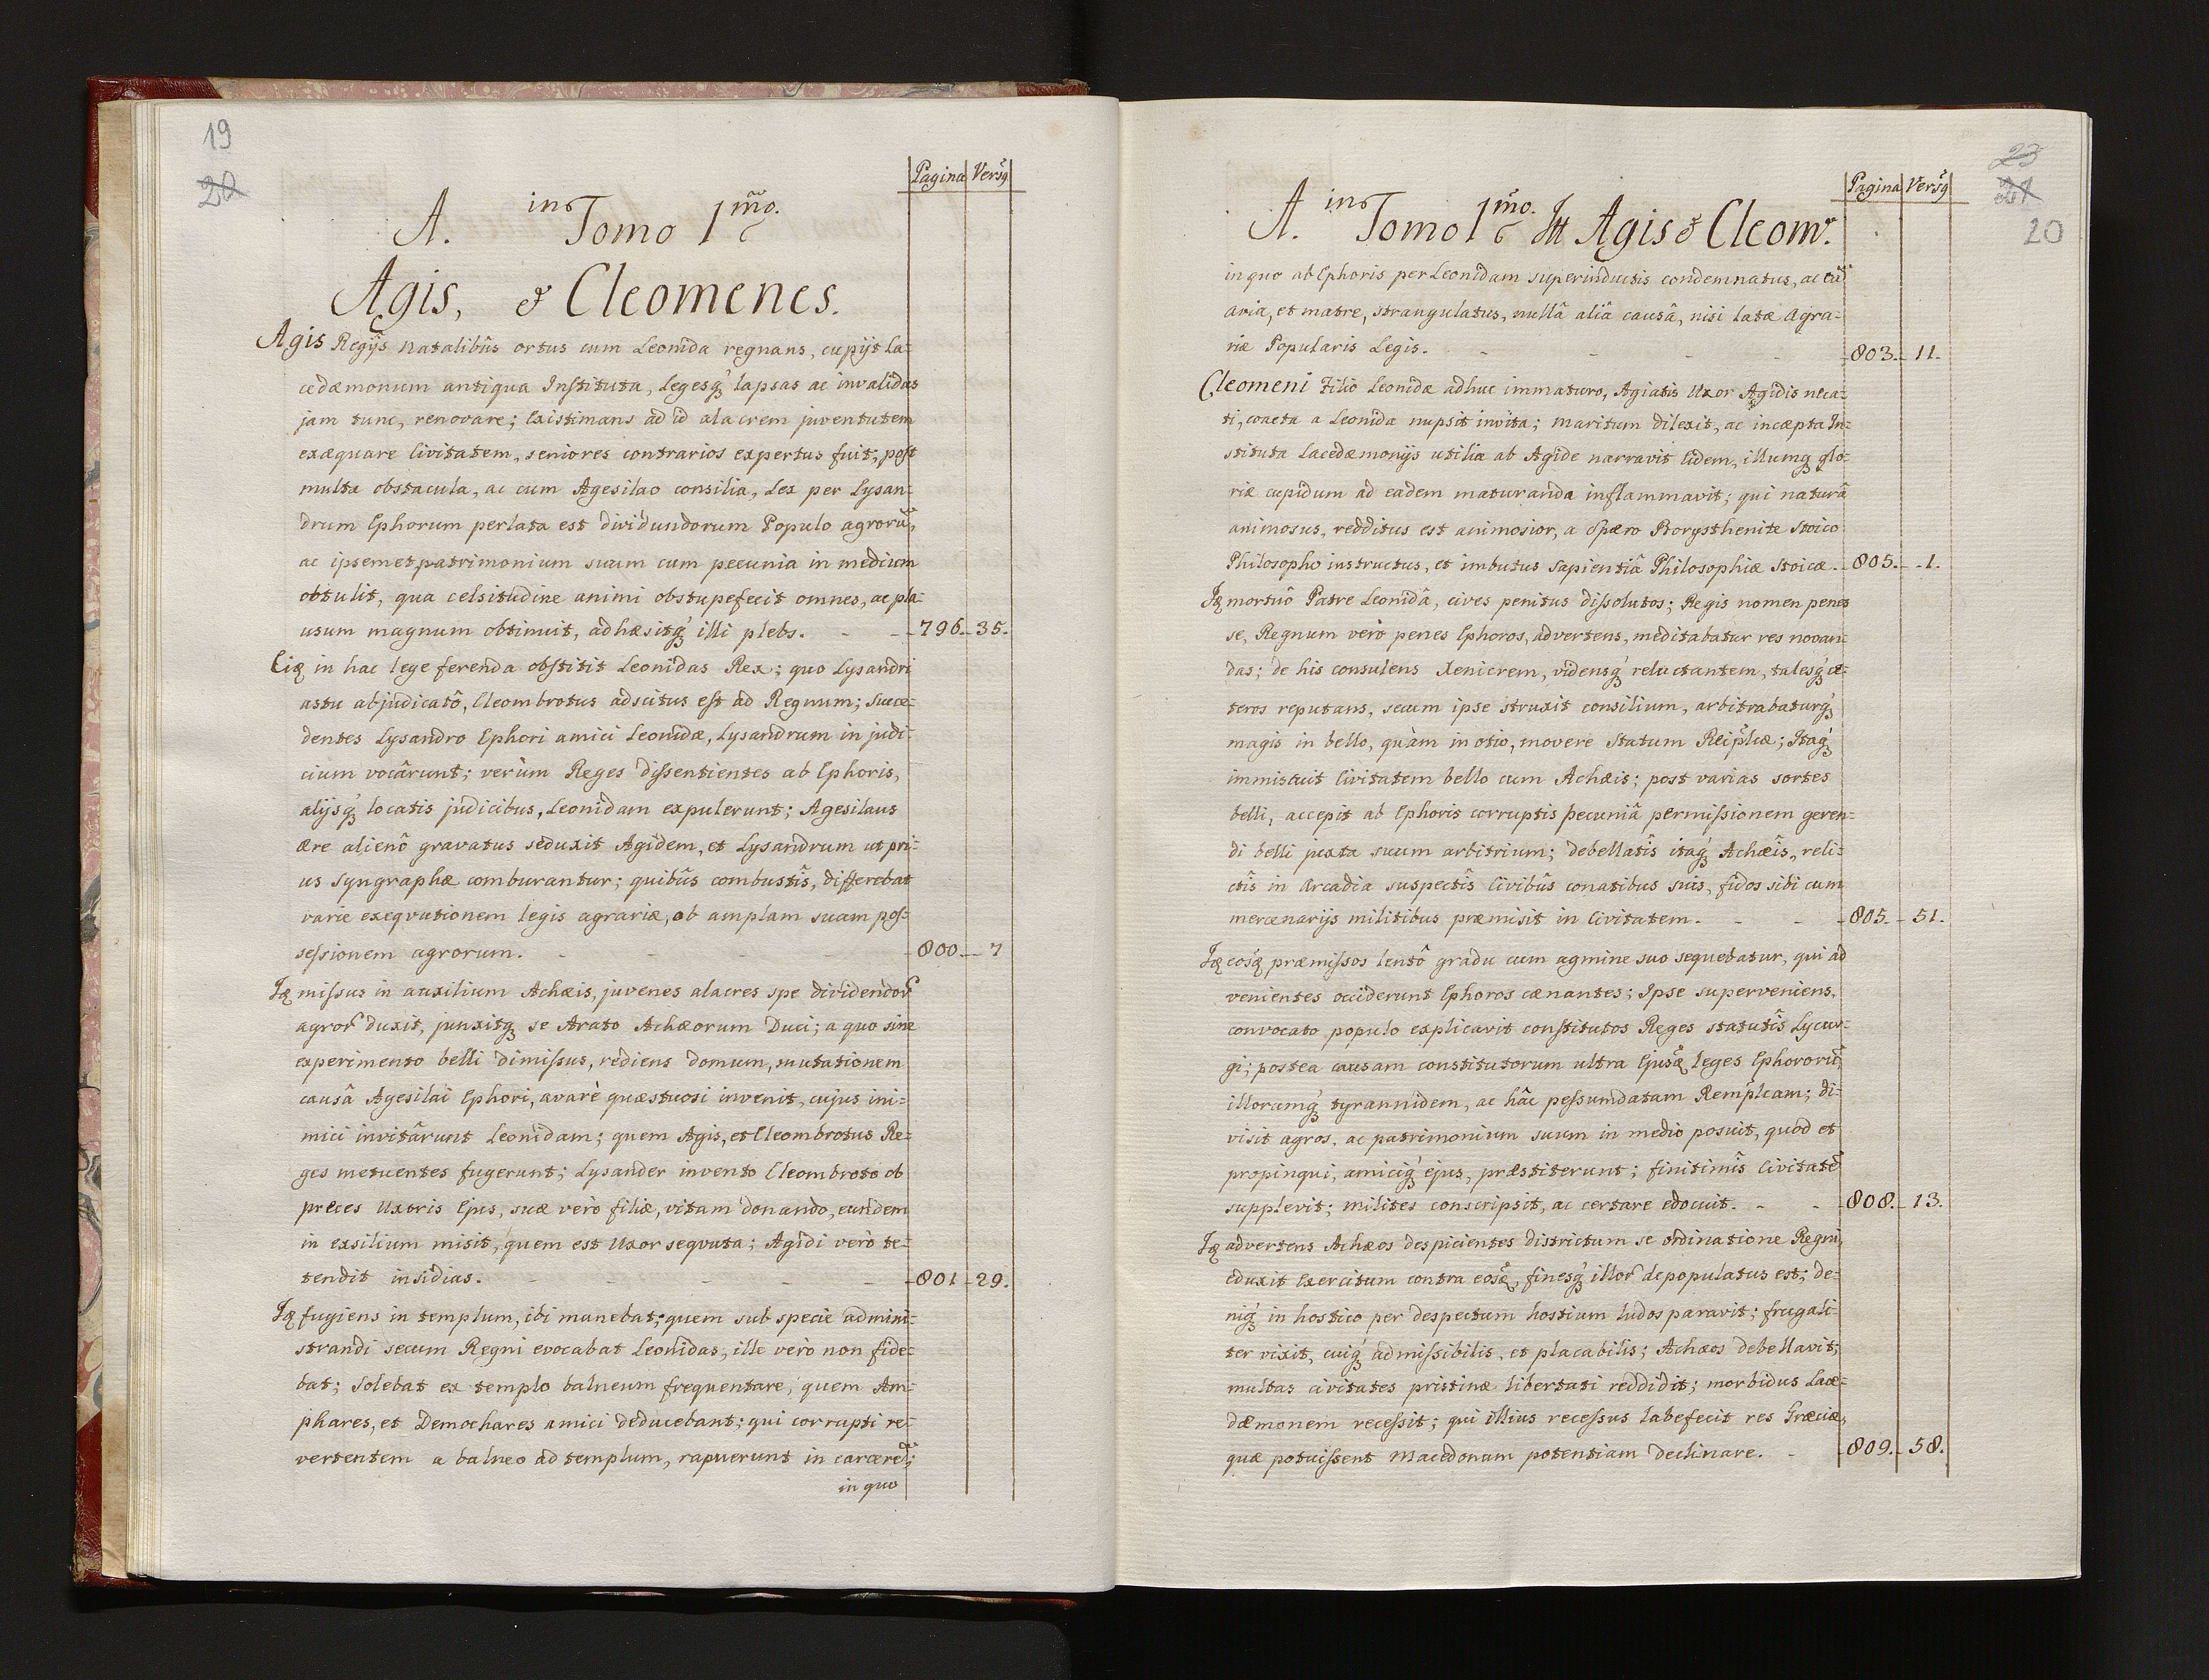 19
20
Pagina Versq
A. in Tomo 1mo.
Agis, & Cleomenes.
Agis Regijs Natalibûs ortus cum Leonida regnans, cupijt La-
cedæmonum antiqua Instituta, Legesq́ lapsas ac invalidas
jam tunc, renovare; Existimans ad id alacrem juventutem
exæquare Civitatem, seniores contrarios expertus fuit; post
multa obstacula, ac cum Agesilao consilia, Lex per Lysan-
drum Ephorum perlata est dividundorum Populo agrorũ,
ac ipsemet patrimonium suum cum pecunia in medium
obtulit, qua celsitudine animi obstupefecit omnes, ac pla-
usum magnum obtinuit, adhæsitq́ illi plebs. - - 796. 35.
Eiq in hac lege ferenda obstitit Leonidas Rex; quo Lysandri
astu abjudicatô, Cleombrotus adscitus est ad Regnum; Succe-
dentes Lysandro Ephori amici Leonidæ, Lysandrum in judi-
cium vocârunt; verùm Reges dissentientes ab Ephoris,
alijsq́ locatis judicibus, Leonidam expulerunt; Agesilaus
ære alienô gravatus seduxit Agidem, et Lysandrum ut pri-
us Syngraphæ comburantur; quibûs combustîs, differebat
varie exeqvutionem legis agrariæ, ob amplam suam pos-
sessionem agrorum. - - - - 800. 7
Iq missus in auxilium Achæis, juvenes alacres spe dividendor
agror duxit, junxitq se Arato Achæorum Duci; a quo sine
experimento belli dimissus, rediens domum, mutationem
causâ Agesilai Ephori, avarè quæstuosi invenit, cujus ini-
mici invitârunt Leonidam; quem Agis, et Cleombrotus Re-
ges metuentes fugerunt; Lysander invento Cleombroto ob
preces Uxoris Ejus, suæ verò filiæ, vitam donando, eundem
in exsilium misit, quem est Uxor seqvuta; Agidi verò te-
tendit insidias. - - - - - 801 29.
Iq fugiens in templum, ibi manebat; quem sub specie admini-
strandi secum Regni evocabat Leonidas, ille verò non fide-
bat; Solebat ex templo balneum frequentare, quem Am-
phares, et Demochares amici deducebant; qui corrupti re-
vertentem a balneo ad templum, rapuerunt in carcerẽ;
in quo
23
21
20
Pagina Versq
A. in Tomo 1mo. Itt Agis & Cleomr.
in quo ab Ephoris per Leonidam superinductis condemnatus, ac cũ
avia, et matre, strangulatus, nullâ aliâ causâ, nisi latæ Agra-
riæ Popularis Legis. - - - - 803. 11.
Cleomeni Filio Leonidæ adhuc immaturo, Agiatis Uxor Agidis neca-
ti, coacta a Leonida nupsit invita; maritum dilexit, ac incæpta In-
stituta Lacedæmonijs utilia ab Agide narravit Eidem, illumq glo-
riæ cupidum ad eadem maturanda inflammavit; qui naturâ
animosus, redditus est animosior, a Spæro Borysthenite Stoico
Philosopho instructus, et imbutus Sapientiâ Philosophiæ Stoicæ. 805. 1.
Iq mortuô Patre Leonidâ, cives penitus dissolutos; Regis nomen penes
se, Regnum verò penes Ephoros, advertens, meditabatur res novan-
das; de his consulens Xenicrem, vidensq́ reluctantem, talesq́ cæ-
teros reputans, secum ipse struxit consilium, arbitrabaturq́
magis in bello, quàm in otio, movere Statum Reiplicæ; Itaq́
immiscuit Civitatem bello cum Achæis; post varias sortes
belli, accepit ab Ephoris corruptis pecuniâ permissionem geren-
di belli juxta suum arbitrium; debellatîs itaq́ Achæîs, reli-
ctîs in Arcadia suspectîs Civibûs conatibus suis, fidos sibi cum
mercenarijs militibus præmisit in Civitatem. - - 805. 51.
Iq eosq præmissos lentô gradu cum agmine suo sequebatur, qui ad
venientes occiderunt Ephoros cænantes; Ipse superveniens,
convocato populo explicavit constitutos Reges statutîs Lycur-
gi; postea causam constitutorum ultra Ejusq leges Ephororũ,
illorumq́ tyrannidem, ac hâc pessumdatam Rempl̃cam; di-
visit agros, ac patrimonium suum in medio posuit, quod et
propinqui, amiciq́ ejus, præstiterunt; finitimîs Civitatẽ
supplevit; milites conscripsit, ac certare edocuit. - - 808. 13.
Iq advertens Achæos despicientes districtum se ordinatione Regni,
eduxit Exercitum contra eosq, finesq́ illor depopulatus est; de-
niq́ in hostico per despectum hostium ludos paravit; frugali-
ter vixit, cuiq́ admissibilis, et placabilis; Achæos debellavit;
multas civitates pristinæ libertati reddidit; morbidus Lacæ-
dæmonem recessit; qui illius recessus labefecit res Græciæ,
quæ potuissent Macedonum potentiam declinare. - 809. 58.